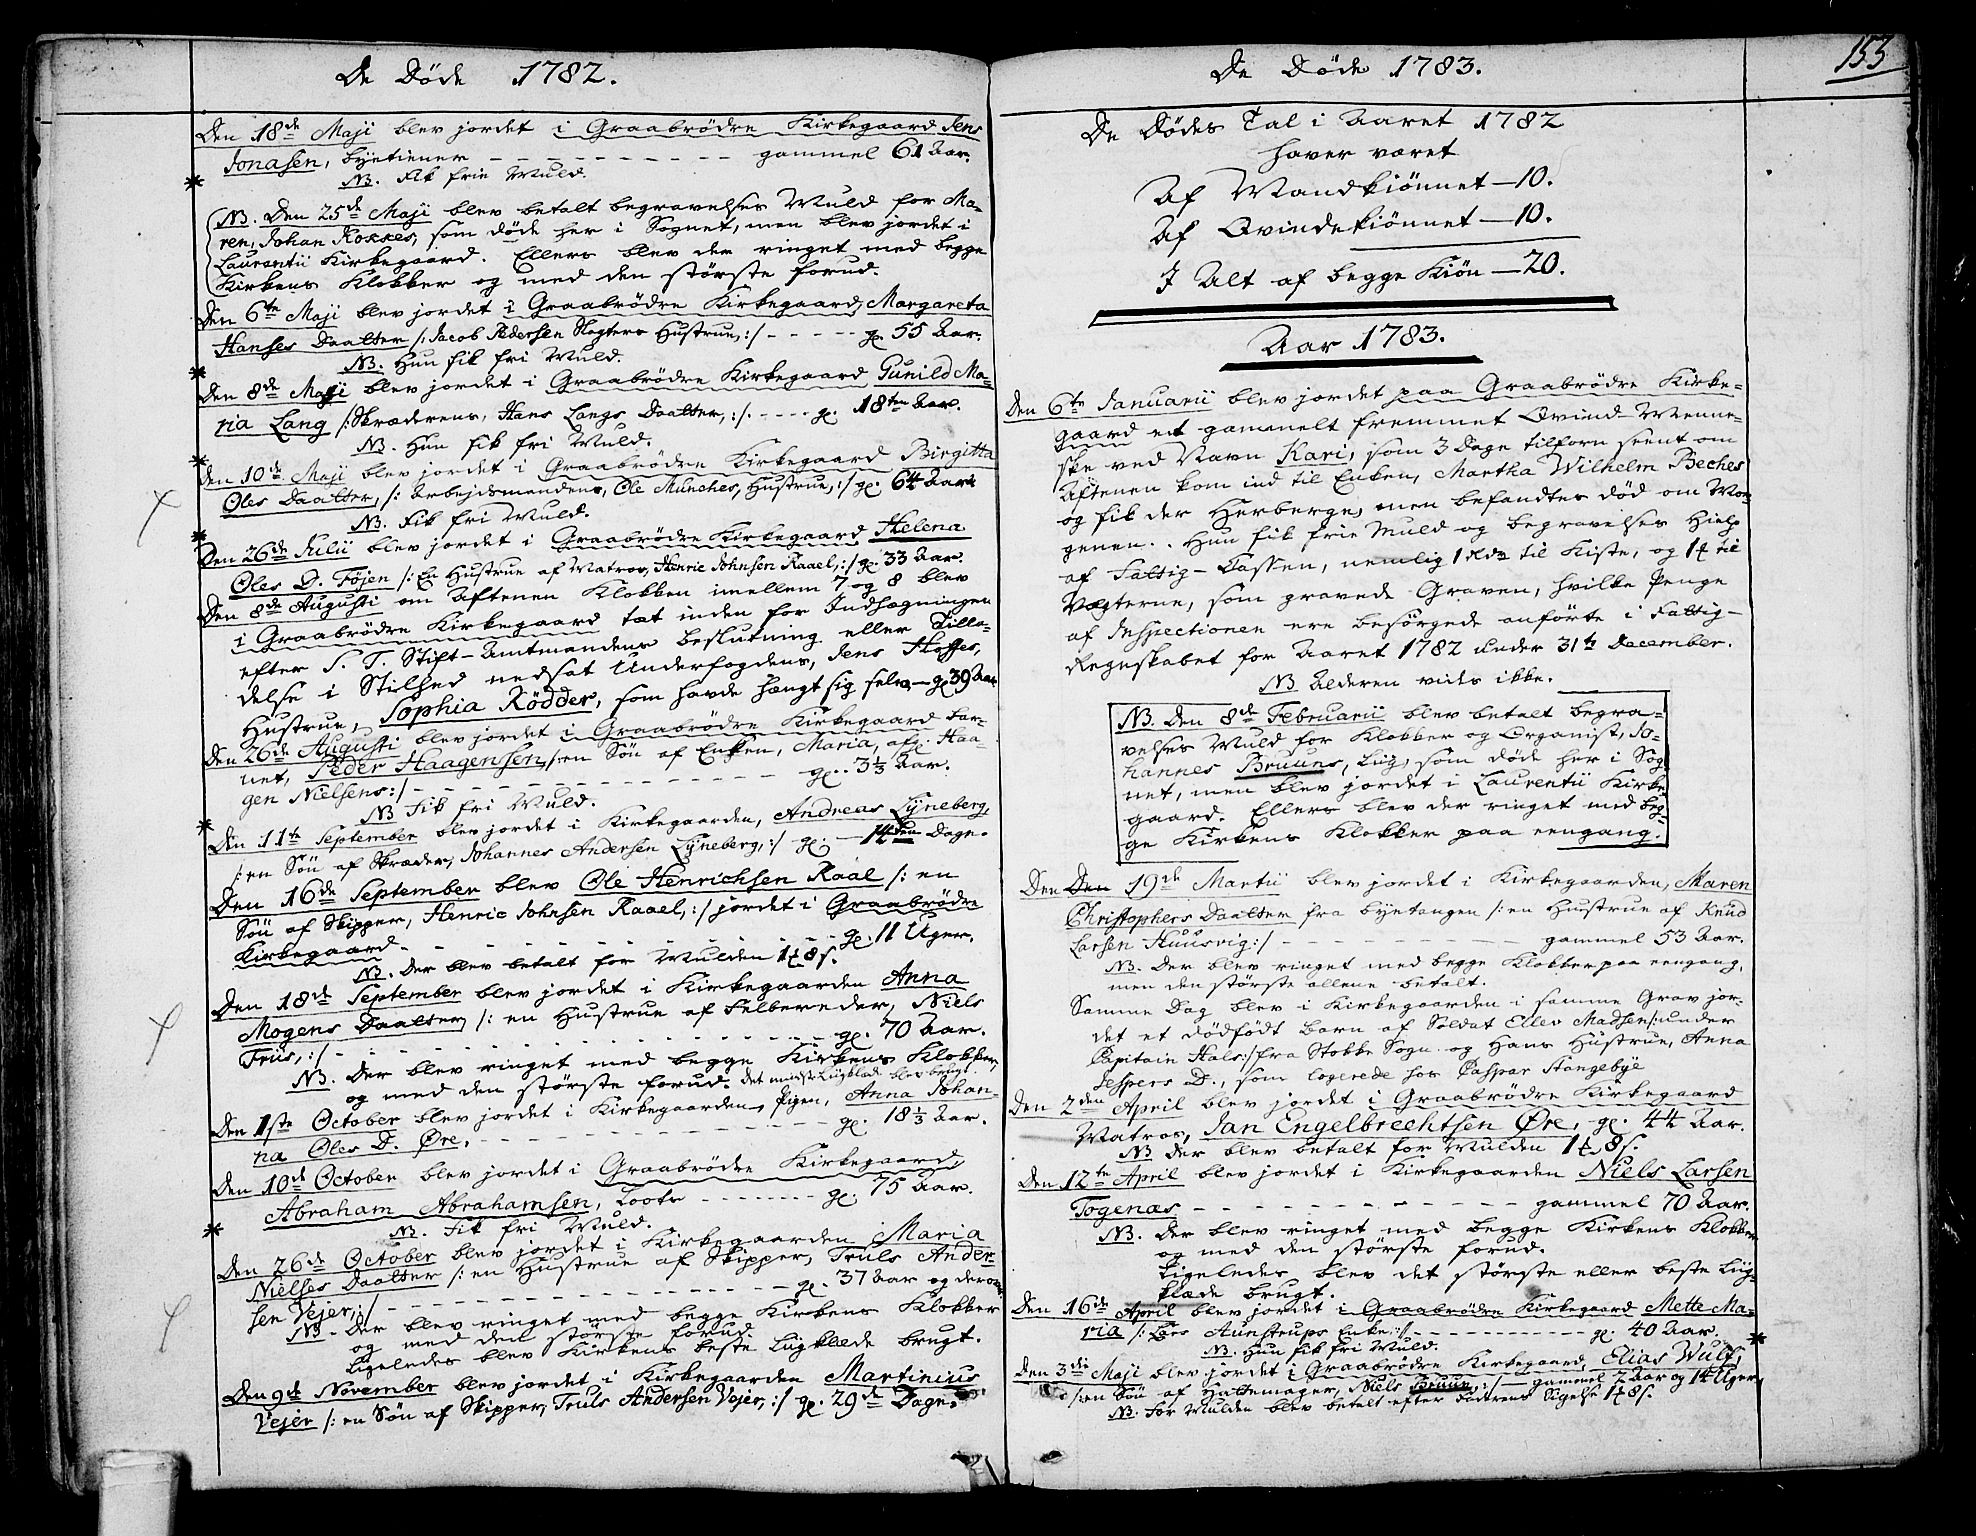 De Døde 1782.
Den 18de Maji blev jordet i Graabrödre Kirkegaard Jens
Jonasen, byetiener - - - gammel 61 Aar.
* NB. Fik frie Muld.
NB. Den 25de Maji blev betalt begravelses Muld for Ma-
ren, Johan Kokkes, som døde her i Sognet, men blev jordet i
Laurentii Kirkegaard. Ellers blev der ringet med begge
Kirkens Klokker og med den störste forud.
Den 6te Maji blev jordet i Graabrödre Kirkegaard, Margareta
Hanses Daatter /: Jacob Pedersen Slagters Hustrue, :/ - - - g. 55 Aar.
* NB. Hun fik fri Muld.
Den 8de Maji blev jordet i Graabrödre Kirkegaard Gunild Ma-
ria Lang /: Skræderens, Hans Langs Daatter, :/ - - - g. 18ten Aar.
NB. Hun fik fri Muld.
* Den 10de Maji blev jordet i Graabrödre Kirkegaard Birgitta
Oles Daatter, /: Arbejdsmandens, Ole Münches, Hustrue, :/ g. 64 Aar
NB. Fik fri Muld.
* Den 26de Julii blev jordet i Graabrödre Kirkegaard Helena
Oles D. Föjen /: En Hustrue af Matros, Henric Johnsen Raael, :/ g. 33 Aar.
Den 8de Augusti om Aftenen Klokken imellem 7 og 8 blev
i Graabrödre Kirkegaard tat inden for Indhegningen
efter S. T. Stift-Amtmandens beslutning eller Tilla-
delse i Stilhed nedsat Underfogdens, Jens Hoffes,
Hustrue, Sophia Rödder, som havde hængt sig selv, - g. 39 Aar
Den 26de Augusti blev jordet i Graabrödre Kirkegaard bar-
net, Peder Haagensen, /: en Sön af Enken, Maria, afg. Haa-
gen Nielsens :/ - - - g. 3 1/3 Aar.
NB Fik fri Muld.
* Den 11te September blev jordet i Kirkegaarden, Andreas Lyneberg,
/: en Sön af Skræder, Johannes Andersen Lyneberg, :/ g. - 14ten Dage.
Den 16de September blev Ole Henrichsen Raal /: en
Sön af Skipper, Henric Johnsen Raael, :/ jordet i Graabrödre
Kirkegaard - - - g. 11 Uger.
NB. Der blev betalt for Mulden 1 8 s.
Den 18de September blev jordet i Kirkegaarden Anna
Mogens Daatter, /: en Hustrue af Felbereder, Niels
Friis, :/ - - - g. 70 Aar.
NB. Der blev ringet med begge Kirkens Klokker,
og med den störste forud. Det mindste Liigklæde blev brugt.
Den 1ste October blev jordet i Kirkegaarden, Pigen, Anna Johan-
na Oles D. Øre, - - - g. 18 1/3 Aar.
Den 10de October blev jordet i Graabrödre Kirkegaard,
Abraham Abrahamsen, Loots - - - g. 75 Aar.
* NB. Fik fri Muld.
Den 26de October blev jordet i Kirkegaarden Maria
Nielses Daatter /: en Hustrue af Skipper, Truls Ander-
sen Vejer, :/ - - - g. 37 Aar og derover
NB. Der blev ringet med begge Kirkens Klokker
og med den störste forud.
Ligeledes blev Kirkens beste Liigklæde brugt.
Den 9de November blev jordet i Kirkegaarden Martinius
Vejer /: en Sön af Skipper, Truls Andersen Vejer, :/ g. 29de Dage.
153
De Døde 1783.
De Dödes Tal i Aaret 1782
haver været
Af Mandkiönnet - 10.
Af Qvindekiönnet - 10.
I Alt af begge Kiön - 20.
Aar 1783.
Den 6te Januarii blev jordet paa Graabrödre Kirke-
gaard et gammelt fremmet Qvind Menne-
ske ved Navn Kari, som 3 Dage tilforn seent om
Aftenen kom ind til Enken, Martha Wilhelm Beches
og fik der Herberge, men befandtes död om Mor-
genen. Hun fik frie Muld og begravelses Hielp
af Fattig-Cassen, nemlig 1 Rdr til Kiste, og 1 til
Vægterne, som gravede Graven, hvilke Penge
af Inspectionen ere besörgede anförte i Fattig-
Regnskabet for Aaret 1782 under 31te December.
NB Alderen vides ikke.
NB. Den 8de Februarii blev betalt begra-
velses Muld for Klokker og Organist, Jo-
hannes Bruuns, Liig, som döde her i Sog-
net, men blev jordet i Laurentii Kirke-
gaard. Ellers blev der ringet med beg-
ge Kirkens Klokker paa eengang.
Den Den 19de Martii blev jordet i Kirkegaarden, Maren
Christophers Daatter fra Byetangen /: en Hustrue af Knud
Larsen Huusvig :/ - - - gammel 53 Aar.
NB. Der blev ringet med begge Klokker paa eengang,
men den störste allene betalt.
Samme Dag blev i Kirkegaarden i samme Grav jor-
det et dödfödt barn af Soldat Ellev Madsen /: under
Capitain Hals :/ fra Stokke Sogn og Hans Hustrue, Anna
Jespers D., som logerede hos Caspar Stangebye
Den 2den April blev jordet i Graabrödre Kirkegaard
Matros, Jan Engelbrechtsen Øre, g. 44 Aar.
NB Der blev betalt for Mulden 1 8 s.
Den 12te April blev jordet i Kirkegaarden Niels Larsen
Togenæs - - - gammel 70 Aar.
NB. Der blev ringet med begge Kirkens Klokker
og med den störste forud.
Ligeledes blev det störste eller beste Liig-
klæde brugt.
Den 16de April blev jordet i Graabrödre Kirkegaard Mette Ma-
ria /: Lars Aunstrups Enke, :/ - - - g. 40 Aar. *
NB. Hun fik fri Muld.
Den 3die Maji blev jordet i Graabrödre Kirkegaard, Elias Wulf,
/: en Sön af Hattemager, Niels Bruun, :/ - gammel 2 Aar og 14 Uger
NB. For Mulden blev betalt efter Faderens Sigelse 1 8 s.